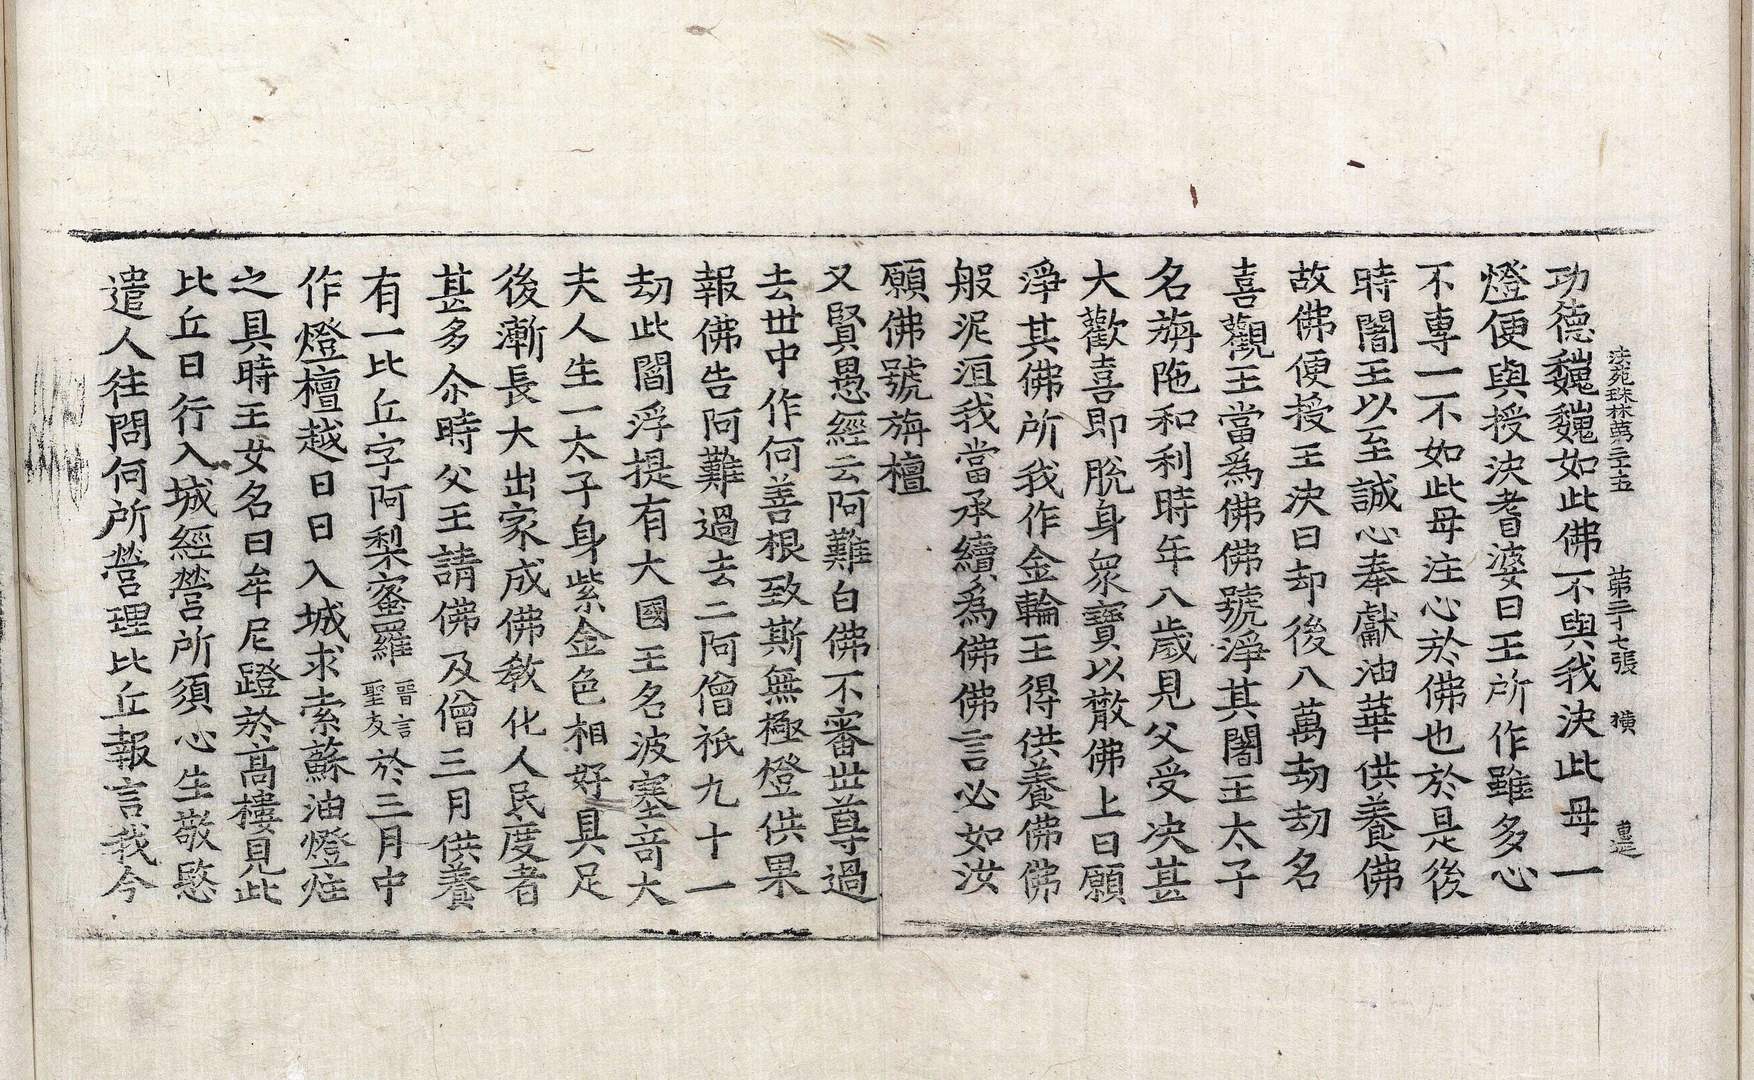 法苑珠林萬三十五 第二十七張 橫 惠逞
功德巍巍如此佛不與我決此母一
燈便與授決耆婆曰王所作雖多心
不專一不如此母注心於佛也於是後
時闍王以至誠心奉獻油華供養佛
故佛便授王決曰却後八萬劫劫名
喜觀王當爲佛佛號淨其闍王太子
名旃陁和利時年八歲見父受决甚
大歡喜即脫身衆寶以散佛上曰願
淨其佛所我作金輪王得供養佛佛
般泥洹我當承續爲佛佛言必如汝
願佛號旃檀
又賢愚經云阿難白佛不審世尊過
去世中作何善根致斯無極燈供果
報佛告阿難過去二阿僧祇九十一
劫此閻浮提有大國王名波塞竒大
夫人生一太子身紫金色相好具足
後漸長大出家成佛敎化人民度者
甚多尒時父王請佛及僧三月供養
有一比丘字阿梨蜜羅晉言聖友於三月中
作燈檀越日日入城求索蘇油燈炷
之具時王女名曰牟尼蹬於高樓見此
比丘日行入城經營所須心生敬愍
遣人往問何所營理比丘報言我今